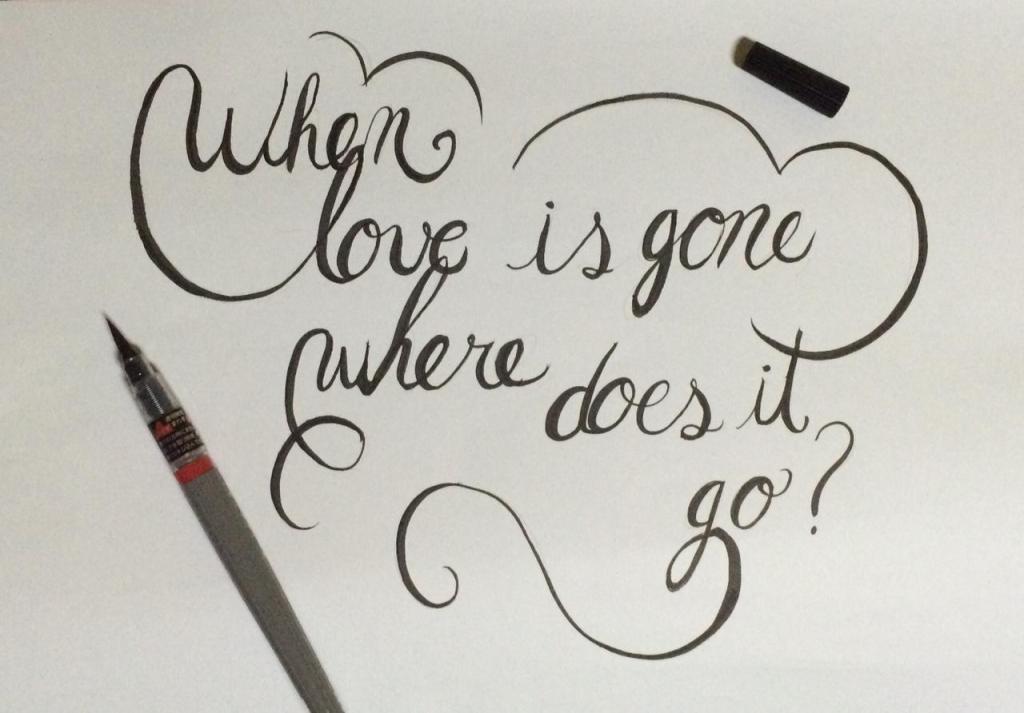 When
love is gone
where does it
go?